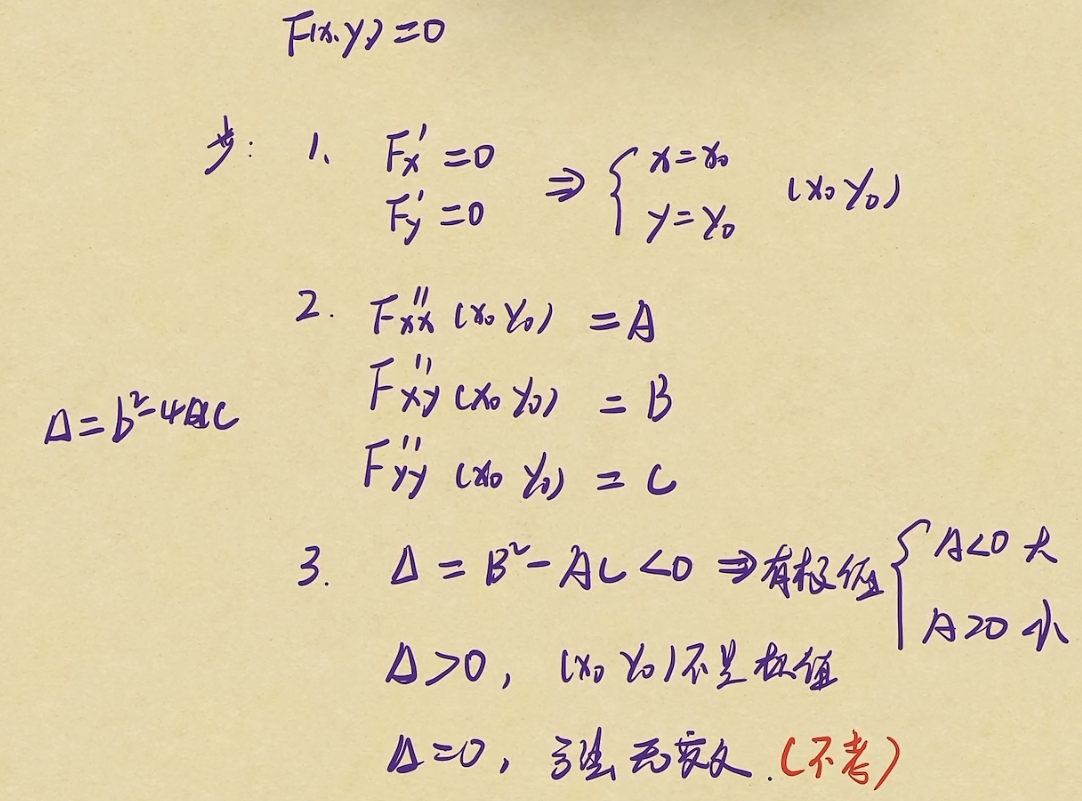 F(x,y)=0
步: 1、 F'x=0
F'y=0 ⇒ { x=x₀ y=y₀ (x₀ y₀)
2. F''xx (x₀ y₀) = A
F''xy (x₀ y₀) = B
Δ=b²-4ac
F''yy (x₀ y₀) = C
3. Δ = B²-AC <0 ⇒有极值 { A<0 大
A>0 小
Δ>0, (x₀ y₀)不是极值
Δ=0, 方法无意义.(不考)